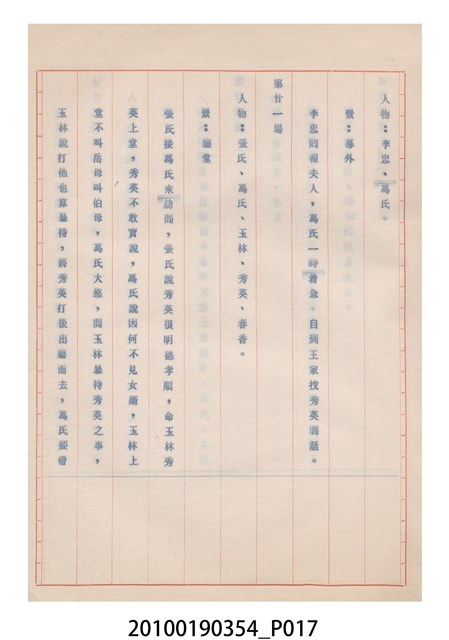 人物：李忠、馮氏。
景：幕外
李忠回報夫人，馮氏一時着急，自到王家找秀英問話。
第廿一場
人物：張氏、馮氏、玉林、秀英、春香。
景：廳堂
張氏接馮氏來訪問，張氏說秀英很明德孝順，命玉林秀
英上堂，秀英不敢實說，馮氏說因何不見女婿，玉林上
堂不叫岳母叫伯母，馮氏大怒，問玉林暴待秀英之事，
玉林說打他也算暴待，將秀英打後出廳而去，馮氏要帶
20100190354_P017